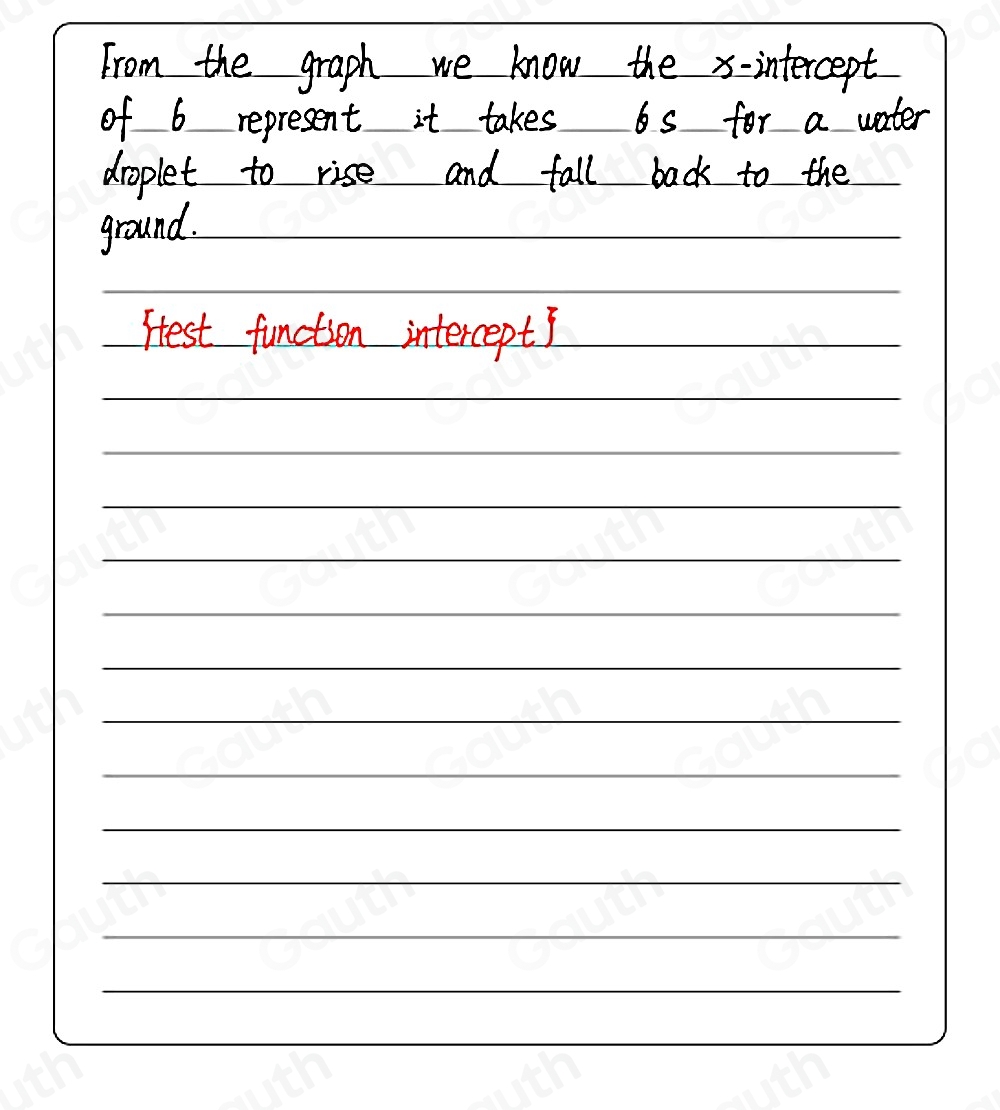 From the graph we know the x-intercept
of 6 represent it takes 6 s for a water
droplet to rise and fall back to the
ground.
{test function intercept}